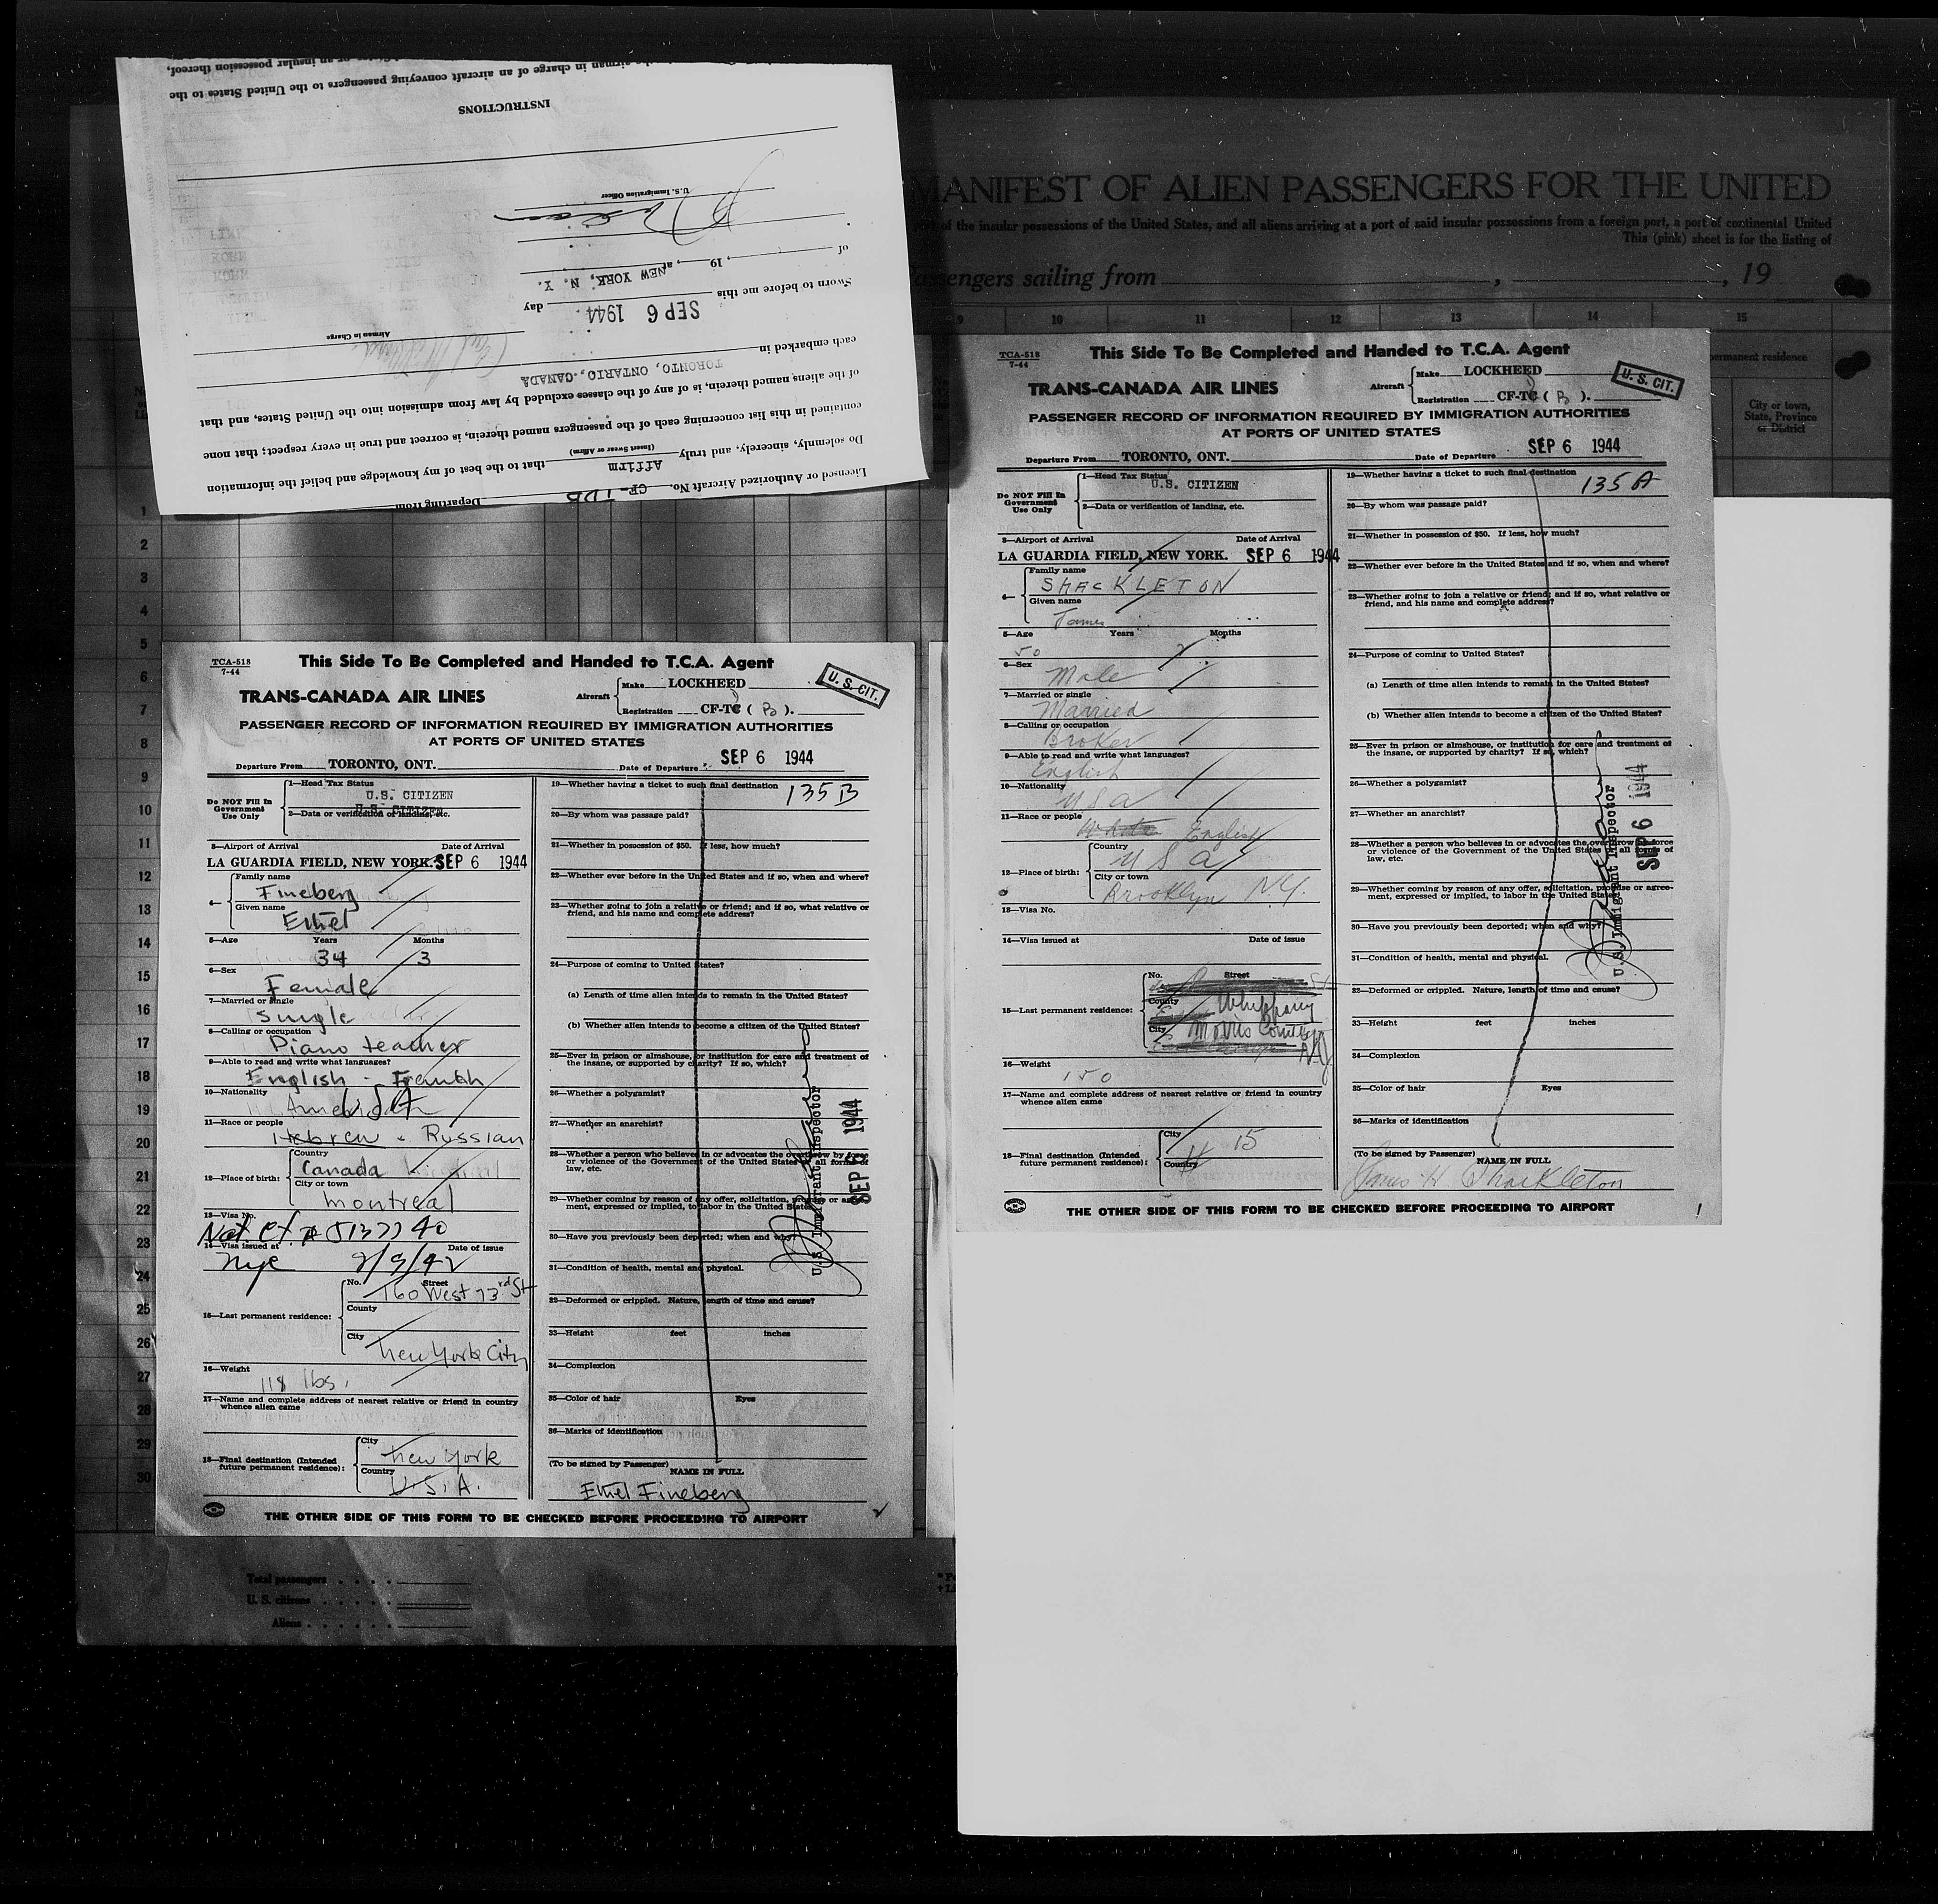 States or an insular possession thereof,
airman in charge of an aircraft conveying passengers to the United States to the
INSTRUCTIONS
U.S. Immigration Officer
of , 19 , at NEW YORK, N. Y.
Sworn to before me this SEP 6 1944 day
Airman in Charge
each embarked in TORONTO, ONTARIO, CANADA
of the aliens named therein, is of any of the classes excluded by law from admission into the United States, and that
contained in this list concerning each of the passengers named therein, is correct and true in every respect; that none
(Insert Swear or Affirm)
Do solemnly, sincerely, and truly Affirm that to the best of my knowledge and belief the information
Licensed or Authorized Aircraft No. CF-TCB Departing from
MANIFEST OF ALIEN PASSENGERS FOR THE UNITED
of the insular possessions of the United States, and all aliens arriving at a port of said insular possessions from a foreign port, a port of continental United
This (pink) sheet is for the listing of
Passengers sailing from , , 19
9 10 11 12 13 14 15
permanent residence
City or town,
State, Province
or District
1
2
3
4
5
6
7
8
9
10
11
12
13
14
15
16
17
18
19
20
21
22
23
24
25
26
27
28
29
30
Total passengers
U. S. citizens
Aliens
TCA-518
7-44
This Side To Be Completed and Handed to T.C.A. Agent
U. S. CIT.
TRANS-CANADA AIR LINES
Aircraft Make LOCKHEED
Registration CF-TC ( B ).
PASSENGER RECORD OF INFORMATION REQUIRED BY IMMIGRATION AUTHORITIES
AT PORTS OF UNITED STATES
Departure From TORONTO, ONT. Date of Departure SEP 6 1944
Do NOT Fill In
Government
Use Only
1—Head Tax Status
U.S. CITIZEN
U.S. CITIZEN
2—Data or verification of landing, etc.
3—Airport of Arrival Date of Arrival
LA GUARDIA FIELD, NEW YORK. SEP 6 1944
4— Family name
Fineberg
Given name
Ethel
5—Age Years Months
34 3
6—Sex
Female
7—Married or single
Single
8—Calling or occupation
Piano teacher
9—Able to read and write what languages?
English - French
10—Nationality
USA
11—Race or people
Hebrew - Russian
12—Place of birth: Country
Canada
City or town
Montreal
13—Visa No.
Nat. Ct. # 5137740
14—Visa issued at Date of issue
NYC 2/9/42
15—Last permanent residence: No. Street
160 West 73rd St
County
City
New York City
16—Weight
118 lbs.
17—Name and complete address of nearest relative or friend in country
whence alien came
18—Final destination (Intended
future permanent residence): City
New York
Country
U.S.A.
19—Whether having a ticket to such final destination
135 B
20—By whom was passage paid?
21—Whether in possession of $50. If less, how much?
22—Whether ever before in the United States and if so, when and where?
23—Whether going to join a relative or friend; and if so, what relative or
friend, and his name and complete address?
24—Purpose of coming to United States?
(a) Length of time alien intends to remain in the United States?
(b) Whether alien intends to become a citizen of the United States?
25—Ever in prison or almshouse, or institution for care and treatment of
the insane, or supported by charity? If so, which?
26—Whether a polygamist?
27—Whether an anarchist?
28—Whether a person who believes in or advocates the overthrow by force
or violence of the Government of the United States or all forms of
law, etc.
29—Whether coming by reason of any offer, solicitation, promise or agree-
ment, expressed or implied, to labor in the United States?
30—Have you previously been deported; when and why?
31—Condition of health, mental and physical.
32—Deformed or crippled. Nature, length of time and cause?
33—Height feet inches
34—Complexion
35—Color of hair Eyes
36—Marks of identification
(To be signed by Passenger)
NAME IN FULL
Ethel Fineberg
U.S. Immigrant Inspector
SEP 6 1944
THE OTHER SIDE OF THIS FORM TO BE CHECKED BEFORE PROCEEDING TO AIRPORT
2
TCA-518
7-44
This Side To Be Completed and Handed to T.C.A. Agent
U. S. CIT.
TRANS-CANADA AIR LINES
Aircraft Make LOCKHEED
Registration CF-TC ( B ).
PASSENGER RECORD OF INFORMATION REQUIRED BY IMMIGRATION AUTHORITIES
AT PORTS OF UNITED STATES
Departure From TORONTO, ONT. Date of Departure SEP 6 1944
Do NOT Fill In
Government
Use Only
1—Head Tax Status
U.S. CITIZEN
2—Data or verification of landing, etc.
3—Airport of Arrival Date of Arrival
LA GUARDIA FIELD, NEW YORK. SEP 6 1944
4— Family name
SHACKLETON
Given name
James
5—Age Years Months
50
6—Sex
Male
7—Married or single
Married
8—Calling or occupation
Broker
9—Able to read and write what languages?
English
10—Nationality
USA
11—Race or people
White English
12—Place of birth: Country
USA
City or town
Brooklyn N.Y.
13—Visa No.
14—Visa issued at Date of issue
15—Last permanent residence: No. Street
County
Whippany
City
Morris County
NJ
16—Weight
150
17—Name and complete address of nearest relative or friend in country
whence alien came
18—Final destination (Intended
future permanent residence): City
15
Country
19—Whether having a ticket to such final destination
135 A
20—By whom was passage paid?
21—Whether in possession of $50. If less, how much?
22—Whether ever before in the United States and if so, when and where?
23—Whether going to join a relative or friend; and if so, what relative or
friend, and his name and complete address?
24—Purpose of coming to United States?
(a) Length of time alien intends to remain in the United States?
(b) Whether alien intends to become a citizen of the United States?
25—Ever in prison or almshouse, or institution for care and treatment of
the insane, or supported by charity? If so, which?
26—Whether a polygamist?
27—Whether an anarchist?
28—Whether a person who believes in or advocates the overthrow by force
or violence of the Government of the United States or all forms of
law, etc.
29—Whether coming by reason of any offer, solicitation, promise or agree-
ment, expressed or implied, to labor in the United States?
30—Have you previously been deported; when and why?
31—Condition of health, mental and physical.
32—Deformed or crippled. Nature, length of time and cause?
33—Height feet inches
34—Complexion
35—Color of hair Eyes
36—Marks of identification
(To be signed by Passenger)
NAME IN FULL
James H. Shackleton
U.S. Immigrant Inspector
SEP 6 1944
THE OTHER SIDE OF THIS FORM TO BE CHECKED BEFORE PROCEEDING TO AIRPORT
1